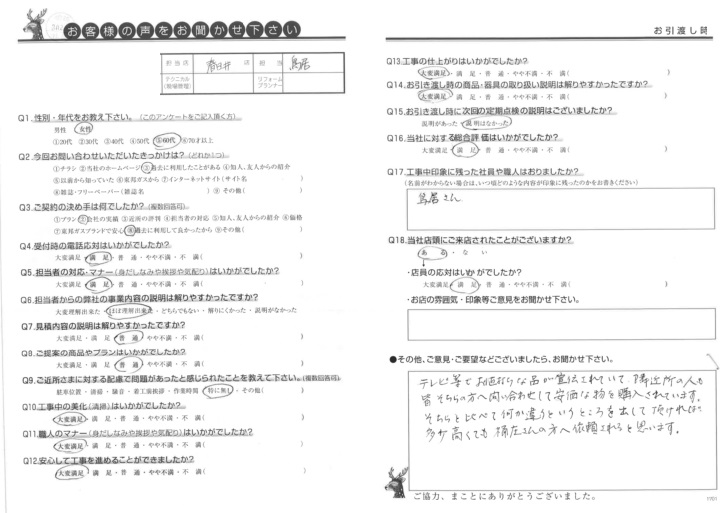 お客様の声をお聞かせ下さい
担当店 春日井 店 担当 鳥居
テクニカル(現場管理) リフォームプランナー
Q1.性別・年代をお教え下さい。(このアンケートをご記入頂く方)
男性 女性
①20代 ②30代 ③40代 ④50代 ⑤60代 ⑥70才以上
Q2.今回お問い合わせいただいたきっかけは?(どれか1つ)
①チラシ ②当社のホームページ ③過去に利用したことがある ④知人、友人からの紹介
⑤以前から知っていた ⑥東邦ガスから ⑦インターネットサイト(サイト名 )
⑧雑誌・フリーペーパー(雑誌名 ) ⑨その他( )
Q3.ご契約の決め手は何でしたか?(複数回答可)
①プラン ②会社の実績 ③近所の評判 ④担当者の対応 ⑤知人、友人からの紹介 ⑥価格
⑦東邦ガスブランドで安心 ⑧過去に利用して良かったから ⑨その他( )
Q4.受付時の電話応対はいかがでしたか?
大変満足・満 足・普 通・やや不満・不 満( )
Q5.担当者の対応・マナー(身だしなみや挨拶や気配り)はいかがでしたか?
大変満足・満 足・普 通・やや不満・不 満( )
Q6.担当者からの弊社の事業内容の説明は解りやすかったですか?
大変理解出来た・ほぼ理解出来た・どちらでもない・解りにくかった・説明がなかった
Q7.見積内容の説明は解りやすかったですか?
大変満足・満 足・普 通・やや不満・不 満( )
Q8.ご提案の商品やプランはいかがでしたか?
大変満足・満 足・普 通・やや不満・不 満( )
Q9.ご近所さまに対する配慮で問題があったと感じられたことを教えて下さい。(複数回答可)
駐車位置・清掃・騒音・着工前挨拶・作業時間・特に無し・その他( )
Q10.工事中の美化(清掃)はいかがでしたか?
大変満足・満 足・普 通・やや不満・不 満( )
Q11.職人のマナー(身だしなみや挨拶や気配り)はいかがでしたか?
大変満足・満 足・普 通・やや不満・不 満( )
Q12.安心して工事を進めることができましたか?
大変満足・満 足・普 通・やや不満・不 満( )
お引渡し時
Q13.工事の仕上がりはいかがでしたか?
大変満足・満 足・普 通・やや不満・不 満( )
Q14.お引き渡し時の商品・器具の取り扱い説明は解りやすかったですか?
大変満足・満 足・普 通・やや不満・不 満( )
Q15.お引き渡し時に次回の定期点検の説明はございましたか?
説明があった・説明はなかった
Q16.当社に対する総合評価はいかがでしたか?
大変満足・満 足・普 通・やや不満・不 満( )
Q17.工事中印象に残った社員や職人はおりましたか?
(名前がわからない場合は、いつ頃どのような内容が印象に残ったのかをお書きください)
鳥居さん
Q18.当社店頭にご来店されたことがございますか?
ある・ない
・店員の応対はいかがでしたか?
大変満足・満 足・普 通・やや不満・不 満( )
・お店の雰囲気・印象等ご意見をお聞かせ下さい。
●その他、ご意見・ご要望などございましたら、お聞かせ下さい。
テレビ等でお値打ちな品が宣伝されていて、隣近所の人も
皆そちらの方へ問い合わせして安価な物を購入されています。
そちらと比べて何が違うというところを出して頂ければ
多少高くても さんの方へ依頼されると思います。
ご協力、まことにありがとうございました。
1701